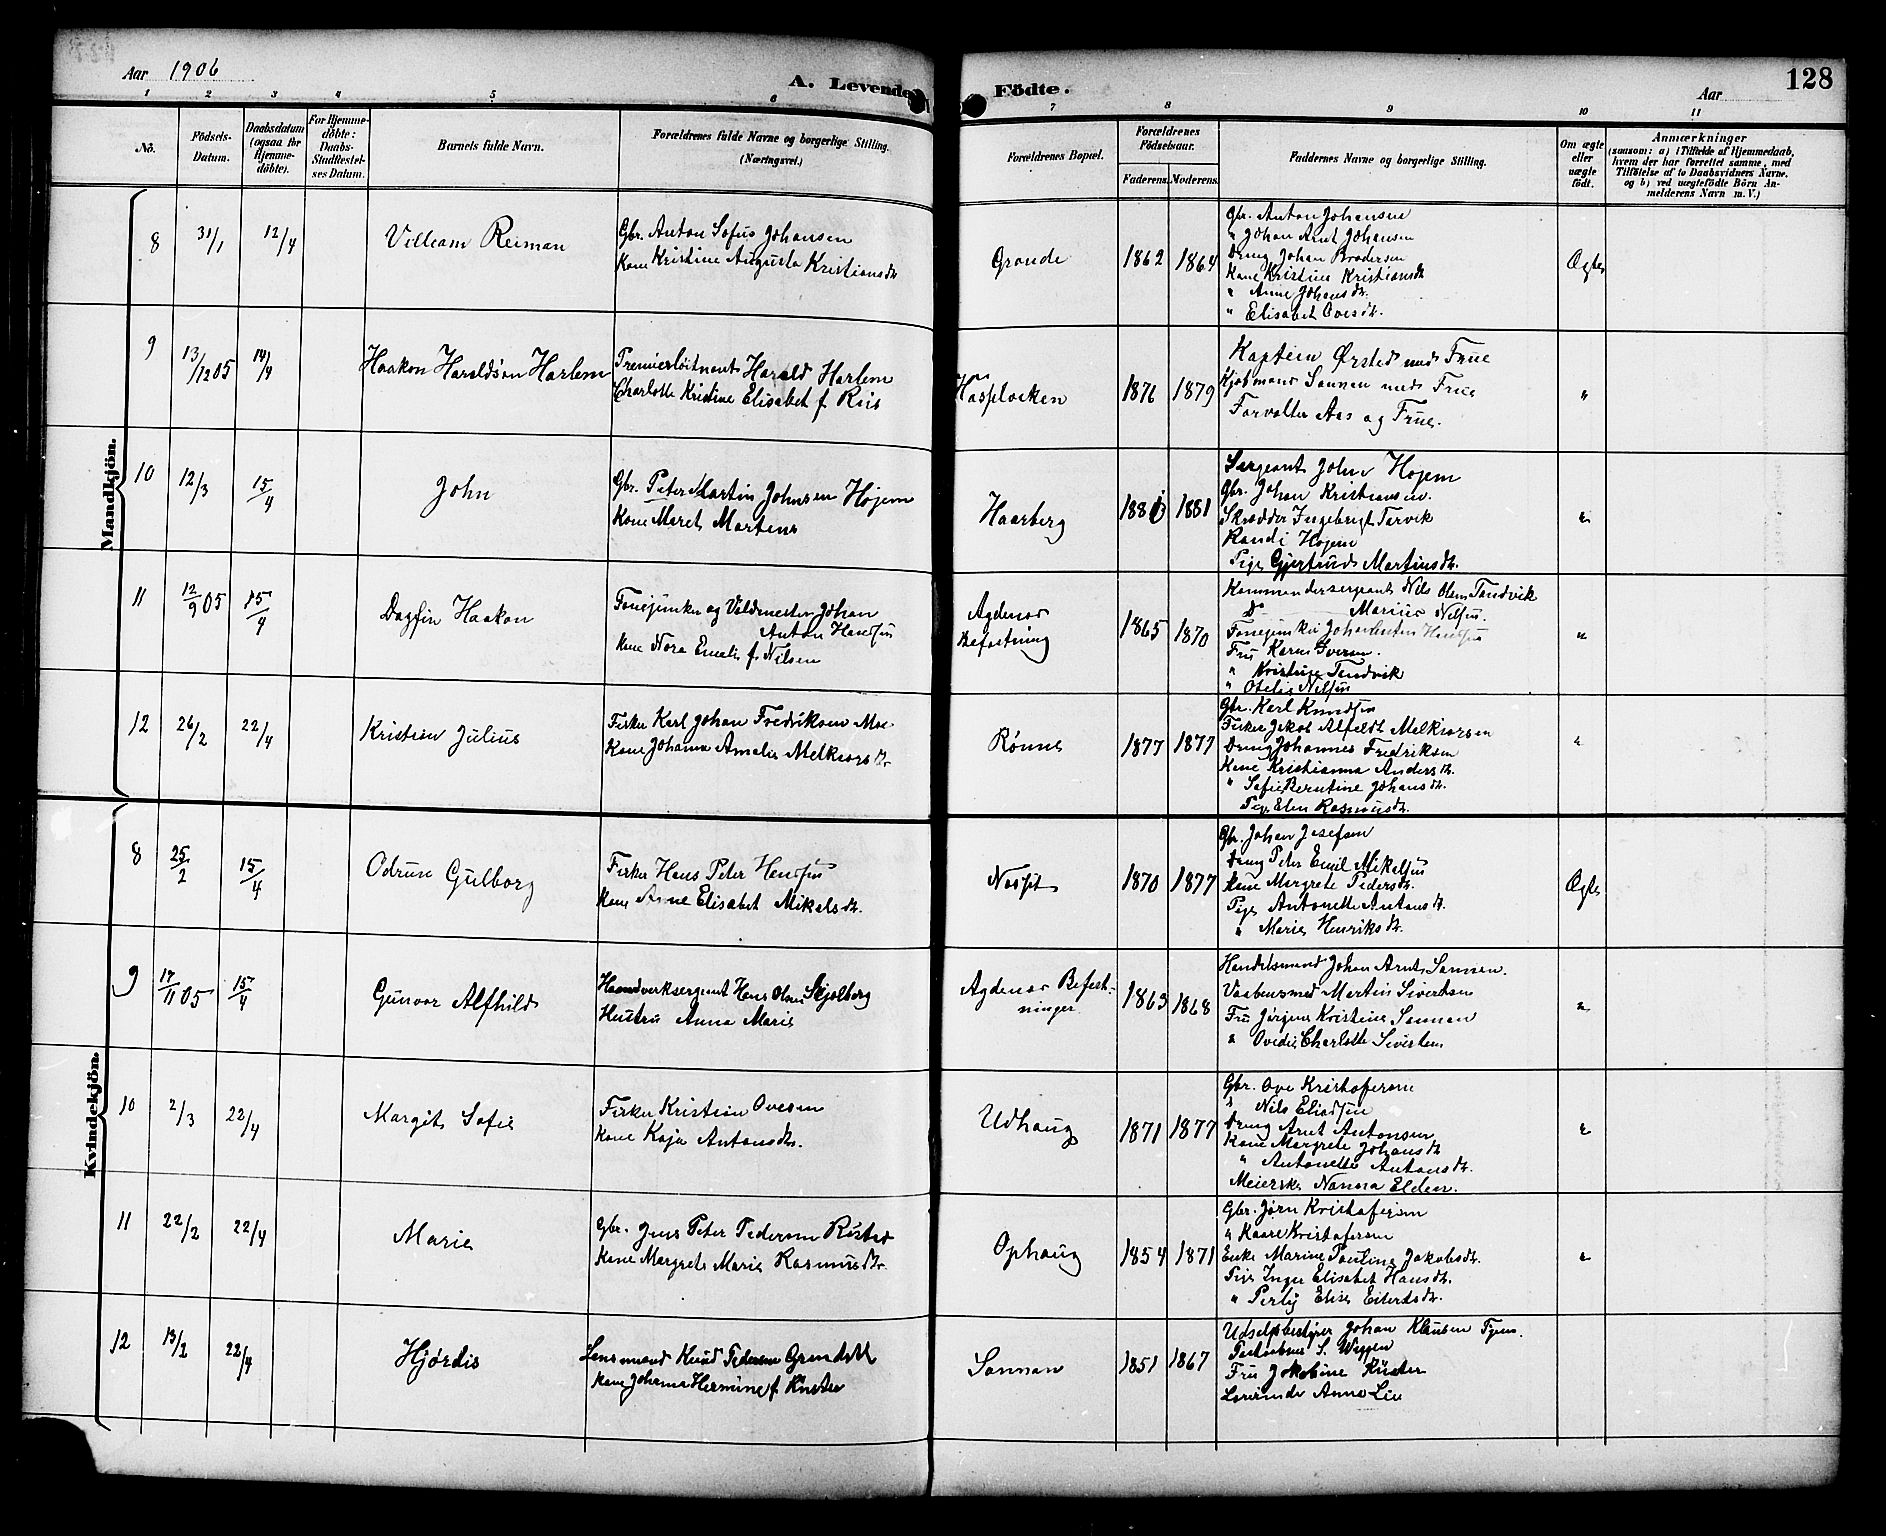 Aar 1906
A. Levende Födte.
128
Aar
1 2 3 4 5 6 7 8 9 10 11
No.
Födsels-Datum.
Daabsdatum (ogsaa for Hjemmedöbte).
For Hjemmedöbte: Daabs-Stadfestelses Datum.
Barnets fulde Navn.
Forældrenes fulde Navne og borgerlige Stilling. (Næringsvei.)
Forældrenes Bopæl.
Forældrenes Födselsaar.
Faderens.
Moderens.
Faddernes Navne og borgerlige Stilling.
Om ægte eller uægte födt.
Anmærkninger
(saasom: a) i Tilfælde af Hjemmedaab,
hvem der har forrettet samme, med
Tilföielse af to Daabsvidners Navne,
og b) ved uægtefödte Börn Anmelderens Navn m. V.)
Mandkjön.
8 31/1 12/4 Villiam Reiman
Gbr. Anton Sofus Johansen
Kone Kristine Augusta Kristiansdt.
Grande 1862 1864
Gbr. Anton Johansen
" Johan Arnt Johansen
Dreng Johan Brodersen
Kone Kristine Kristiansdt
" Anne Johansdt.
" Elisabet Ovesdt.
Ægte
9 13/12 05 14/4 Haakon Haraldsøn Harlem
Premierløitnant Harald Harlem
Charlotte Kristine Elisabet f. Riis
1876 1879
Kaptein Ørsted med Frue
Kjøbmand Sannan med Frue
Forvalter Aas og Frue.
"
10 12/3 15/4 John
Gbr. Peter Martin Johnsen Højem
Kone Maret Martens
Haarberg 1880 1881
Sergeant John Hojem
Gbr. Johan Kristiansen.
Skrædder Ingebrigt Tarvik
Randi Hojem
Pige Gjertrud Martinsdt.
"
11 12/9 05 15/4 Dagfin Haakon
Tøiejunker og Valdmester Johan
Anton Hansen
Kone Nora Emelie f. Nilsen
Agdenes
Befæstning
1865 1870
Kommandersergeant Nils Olsen Tandvik
Do Marius Nilsen.
Tøiejunker Johan Anton Hansen
Fru Karen Iversen.
" Kristine Tandvik
" Otelie Nilsen
"
12 26/2 22/4 Kristian Julius
Fisker Karl Johan Fredriksen Moe.
Kone Johanna Amalie Melkiorsdtr
Rønne 1877 1877
Gbr. Karl Knudsen
Fisker Jakob Alfeldt Melkiorsen
Dreng Johannes Fredriksen
Kone Kristianna Andersdt.
" Sofie Berntine Johansdt.
Pige Elen Rasmusdt.
"
Kvindekjön.
8 25/2 15/4 Odrun Gulborg
Fisker Hans Peter Hansen
Kone Anne Elisabet Mikelsdt.
1870 1877
Gbr. Johan Josefsen
Dreng Peter Emil Mikelsen
Kone Margrete Pedersdt.
Pige Antonette Antonsdt.
" Marie Henriksdt.
Ægte
9 17/11 05 15/4 Gunvor Alfhild
Haandverksergeant Hans Olsen Skjølberg
Hustru Anna Marie
Agdenes Befæst-
ninger
1863 1868
Handelsmand Johan Arnt Sannan.
Vaabensmed Martin Sivertsen
Fru Jørgine Kristine Sannan
" Ovedie Charlotte Sivertsen
"
10 2/3 22/4 Margit Sofie
Fisker Kristian Ovesen
Kone Kaja Antonsdt.
Udhaug 1871 1877
Gbr. Ove Kristofersen
" Nils Eliassen
Dreng Arnt Antonsen
Kone Margrete Johansdt
" Antonette Antonsdt.
Meierske Nanna Elden.
"
11 22/2 22/4 Marie
Gbr. Jens Peter Pedersen Rusted
Kone Margrete Marie Rasmusdtr
Ophaug 1854 1871
Gbr. Jørn Kristofersen
" Kaare Kristofersen
Enke Marine Pauline Jakobsdt.
Pige Inger Elisabet Hansdt.
" Perly Elise Eilertsdt.
"
12 13/2 22/4 Hjørdis
Lensmand Knud Pedersen
Kone Johanna Hermine f. Küster
Sannan 1851 1867
Udsalgsbestyrer Johan Klausen
S. Wiggen
Fru Jakobine Küster
Lærerinde Anna Lie